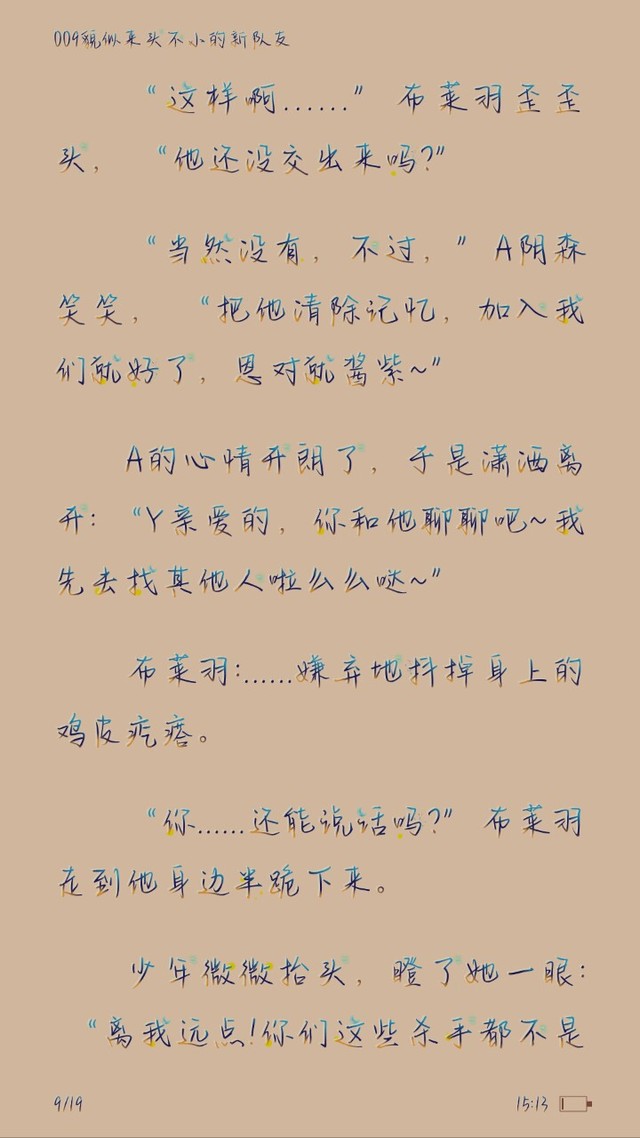 009貌似来头不小的新队友
“这样啊……”布莱羽歪歪
头，“他还没交出来吗?”
“当然没有，不过，”A阴森
笑笑，“把他清除记忆，加入我
们就好了，恩对就酱紫~”
A的心情开朗了，于是潇洒离
开:“Y亲爱的，你和他聊聊吧~我
先去找其他人啦么么哒~”
布莱羽:……嫌弃地抖掉身上的
鸡皮疙瘩。
“你……还能说话吗?”布莱羽
走到他身边半跪下来。
少年微微抬头，瞪了她一眼:
“离我远点!你们这些杀手都不是
9/19
15:13